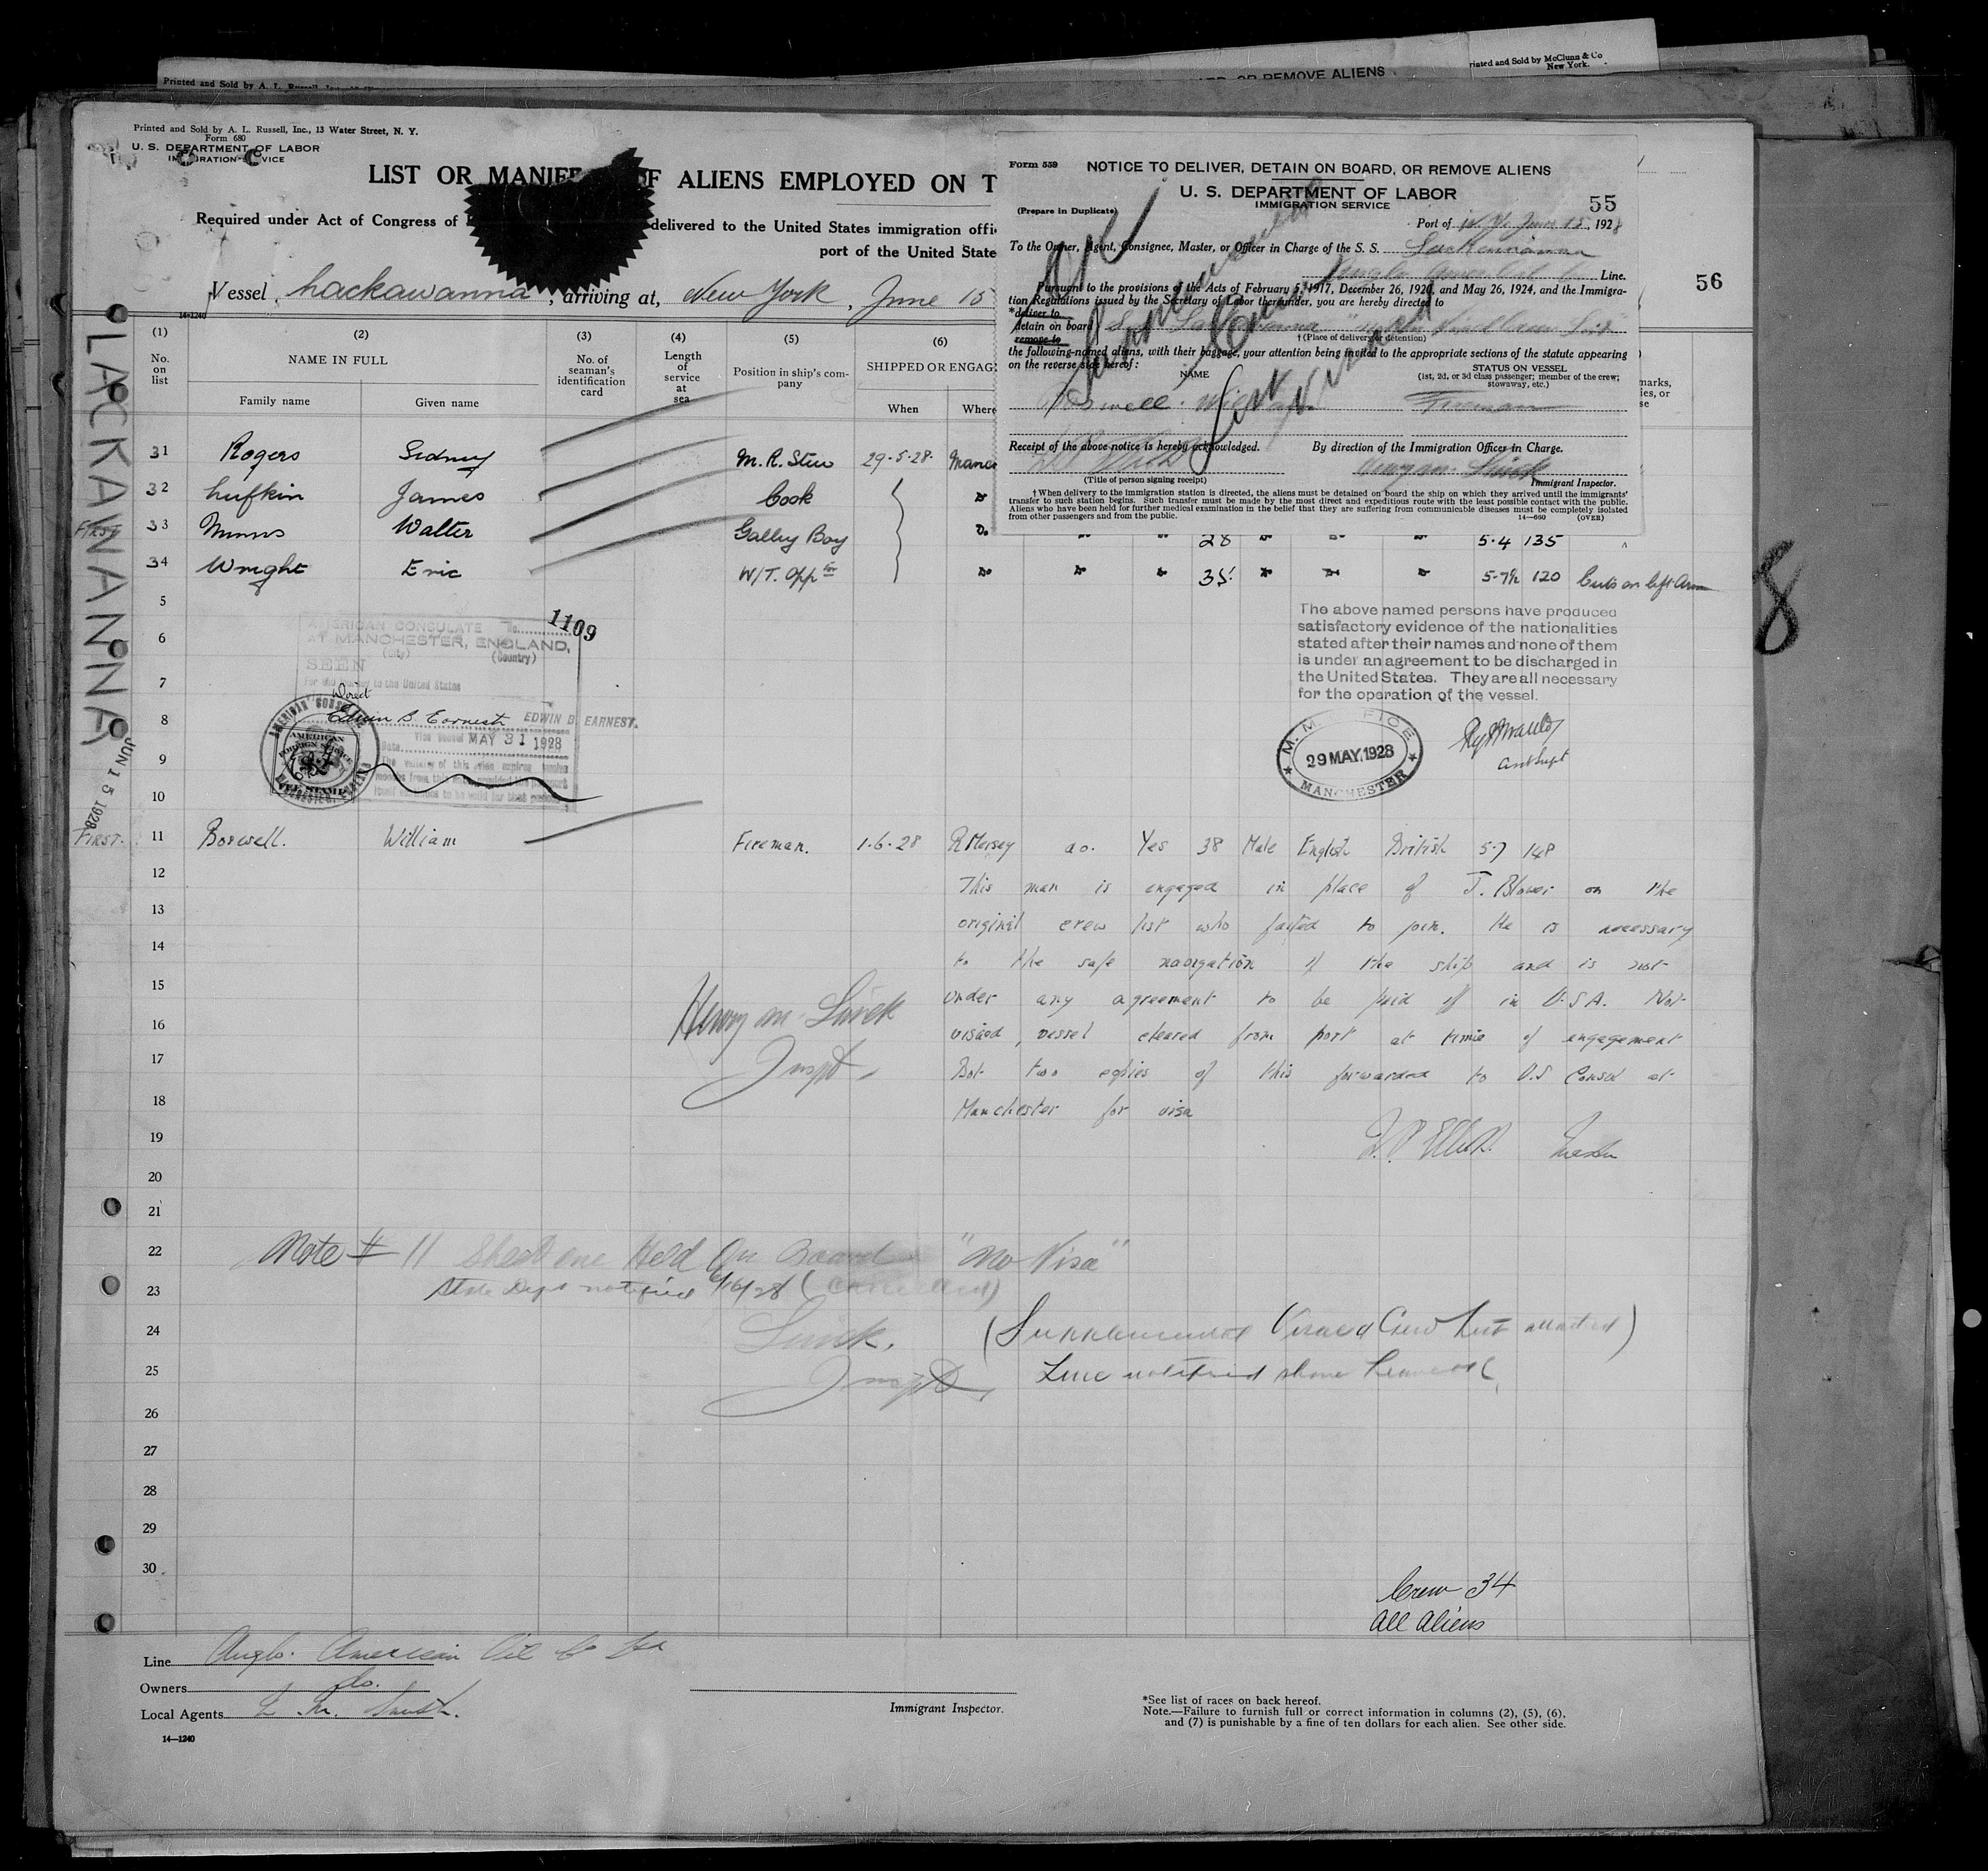 Printed and Sold by A. L. Russell, Inc.
OR REMOVE ALIENS
Printed and Sold by McClunn & Co
New York.
Printed and Sold by A. L. Russell, Inc., 13 Water Street, N. Y.
Form 680
U. S. DEPARTMENT OF LABOR
IMMIGRATION SERVICE
LIST OR MANIFE F ALIENS EMPLOYED ON T
Required under Act of Congress of delivered to the United States immigration offi
port of the United State
Vessel Lackawanna, arriving at, New York, June 15
14-1240
56
Form 559
NOTICE TO DELIVER, DETAIN ON BOARD, OR REMOVE ALIENS
U. S. DEPARTMENT OF LABOR
IMMIGRATION SERVICE
55
(Prepare in Duplicate)
Port of N.Y. June 15, 1928
To the Owner, Agent, Consignee, Master, or Officer in Charge of the S. S. Lackawanna
Anglo Amer Oil Co Line.
Pursuant to the provisions of the Acts of February 5, 1917, December 26, 1920, and May 26, 1924, and the Immigra-
tion Regulations issued by the Secretary of Labor thereunder, you are hereby directed to
*deliver to
detain on board S.S. Lackawanna
remove to
† (Place of delivery or detention)
the following-named aliens, with their baggage, your attention being invited to the appropriate sections of the statute appearing
on the reverse side hereof:
NAME
STATUS ON VESSEL
(1st, 2d, or 3d class passenger; member of the crew;
stowaway, etc.)
Boswell William Fireman
Receipt of the above notice is hereby acknowledged.
By direction of the Immigration Officer in Charge.
Henry M. Linck
(Title of person signing receipt)
Immigrant Inspector.
† When delivery to the immigration station is directed, the aliens must be detained on board the ship on which they arrived until the immigrants'
transfer to such station begins. Such transfer must be made by the most direct and expeditious route with the least possible contact with the public.
Aliens who have been held for further medical examination in the belief that they are suffering from communicable diseases must be completely isolated
from other passengers and from the public.
14—660 (OVER)
(1) (2) (3) (4) (5) (6)
No. on list
NAME IN FULL
Family name Given name
No. of seaman's identification card
Length of service at sea
Position in ship's company
SHIPPED OR ENGAG
When Where
31 Rogers Sidney M.R. Stew 29-5-28 Manc
32 Lufkin James Cook
FIRST 33 Mimms Walter Galley Boy Do. 28 5-4 135
34 Wright Eric W/T. Oppter 35 5-7½ 120 Cuts on left Arm
5
6
7
8
9
10
1109
AMERICAN CONSULATE No.
AT MANCHESTER, ENGLAND,
(City) (Country)
SEEN
For the journey to the United States
Direct
Edwin B. Earnest EDWIN B. EARNEST.
Vice Consul
Date MAY 31 1928
AMERICAN FOREIGN SERVICE
FEE STAMP
The above named persons have produced
satisfactory evidence of the nationalities
stated after their names and none of them
is under an agreement to be discharged in
the United States. They are all necessary
for the operation of the vessel.
29 MAY. 1928
MANCHESTER
LACKAWANNA
JUN 15 1928
8
FIRST. 11 Boswell. William Fireman. 1-6-28 R Mersey ao. Yes 38 Male English British 5-7 148
12 This man is engaged in place of J. Blower on the
13 original crew list who failed to join. He is necessary
14 to the safe navigation of the ship and is not
15 under any agreement to be paid off in U.S.A. Not
16 visaed, vessel cleared from port at time of engagement
17 But two copies of this forwarded to U.S Consul at
18 Manchester for visa
Henry M. Linck
Inspt.
19 Master
20
21
22 Note # 11 Sheet one Held On Board "No Visa"
23 State Dept notified 6/16/28 (Cancelled)
24 Linck. (Supplemental Visaed Crew List attached)
25 Inspt. Line notified
26
27
28
29
30
Crew 34
All Aliens
Line Anglo. American Oil Co Ltd
Owners do.
Local Agents
Immigrant Inspector.
*See list of races on back hereof.
Note.—Failure to furnish full or correct information in columns (2), (5), (6),
and (7) is punishable by a fine of ten dollars for each alien. See other side.
14—1240